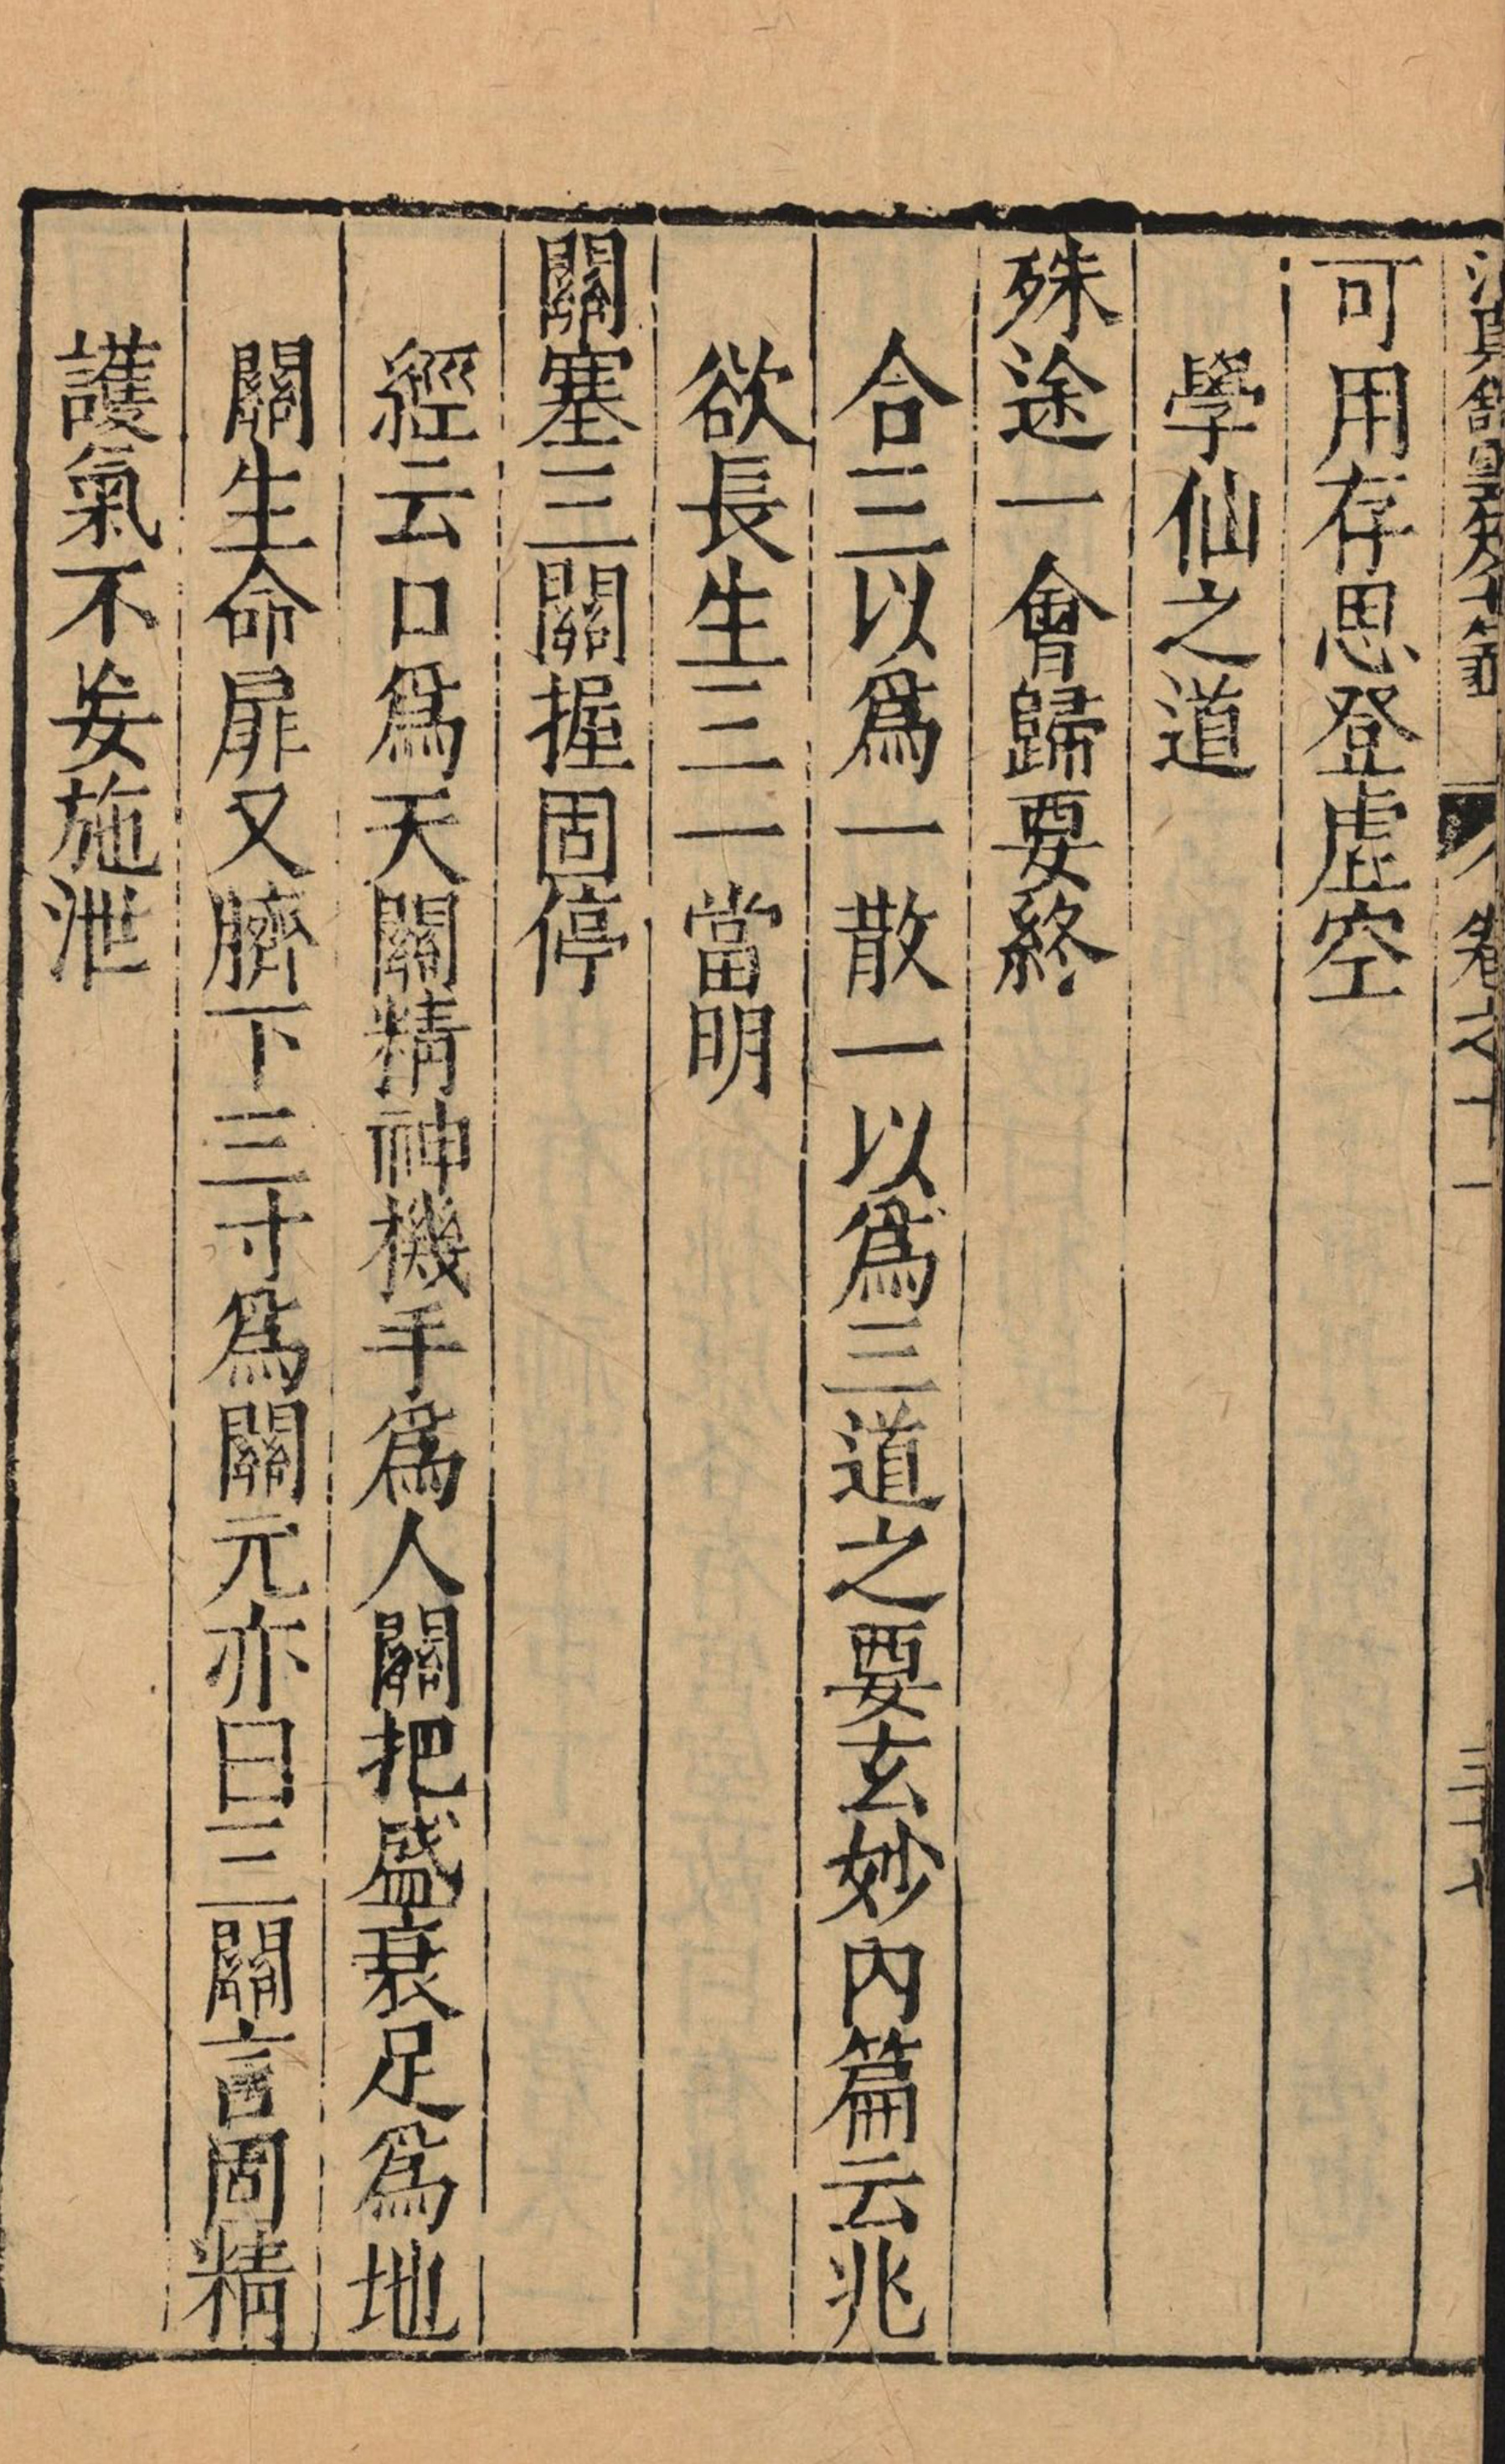 雲笈七籤 卷之十一 三十七
可用存思登虛空
學仙之道
殊途一會歸要終
合三以爲一散一以爲三道之要玄妙內篇云兆
欲長生三一當明
關塞三關握固停
經云口爲天關精神機手爲人關把盛衰足爲地
關生命扉又臍下三寸爲關元亦曰三關言固精
護氣不妄施泄